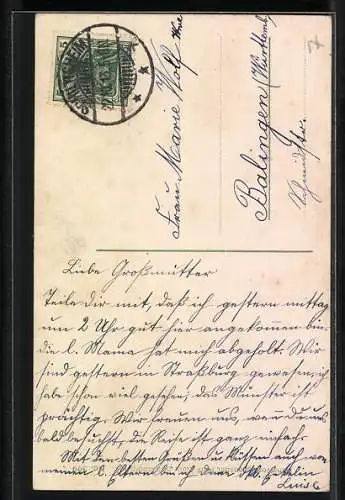 Frau Marie Wolf Wwe
Balingen (Württembg.
Schmidstr.
7
5
SCHILTIGHEIM
Liebe Großmutter
Teile Dir mit, daß ich gestern mittag
um 2 Uhr gut hier angekommen bin.
die l. Mama hat mich abgeholt. Wir
sind gestern in Straßburg gewesen, ich
habe schon viel gesehen, das Münster ist
prächtig. Wir freuen uns, wenn du uns
bald besuchst, die Reise ist ganz einfach.
Mit den besten Grüßen u. Küssen auch von
meinen l. Eltern bin ich
Luise